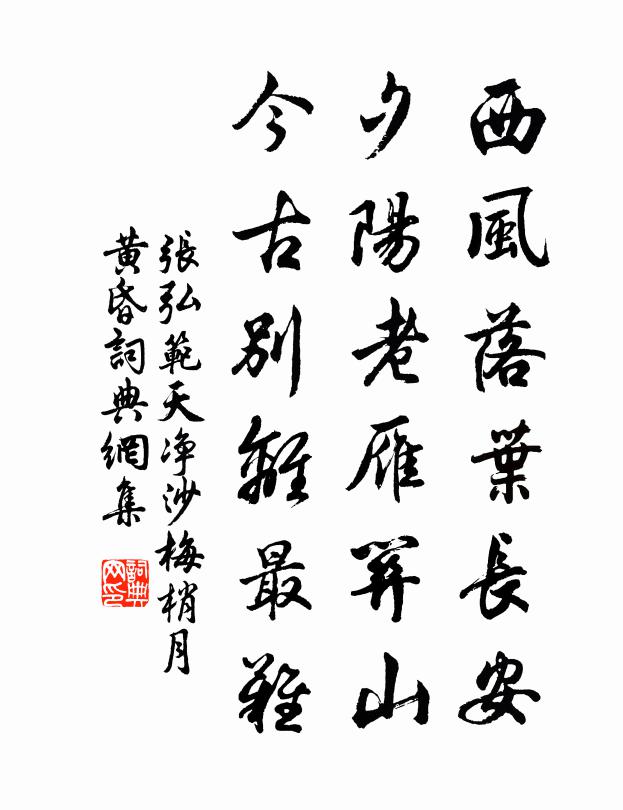 西風落葉長安
夕陽老雁關山
今古別離最難
張弘範天净沙梅梢月
黄昏詞典網集
詞典网印